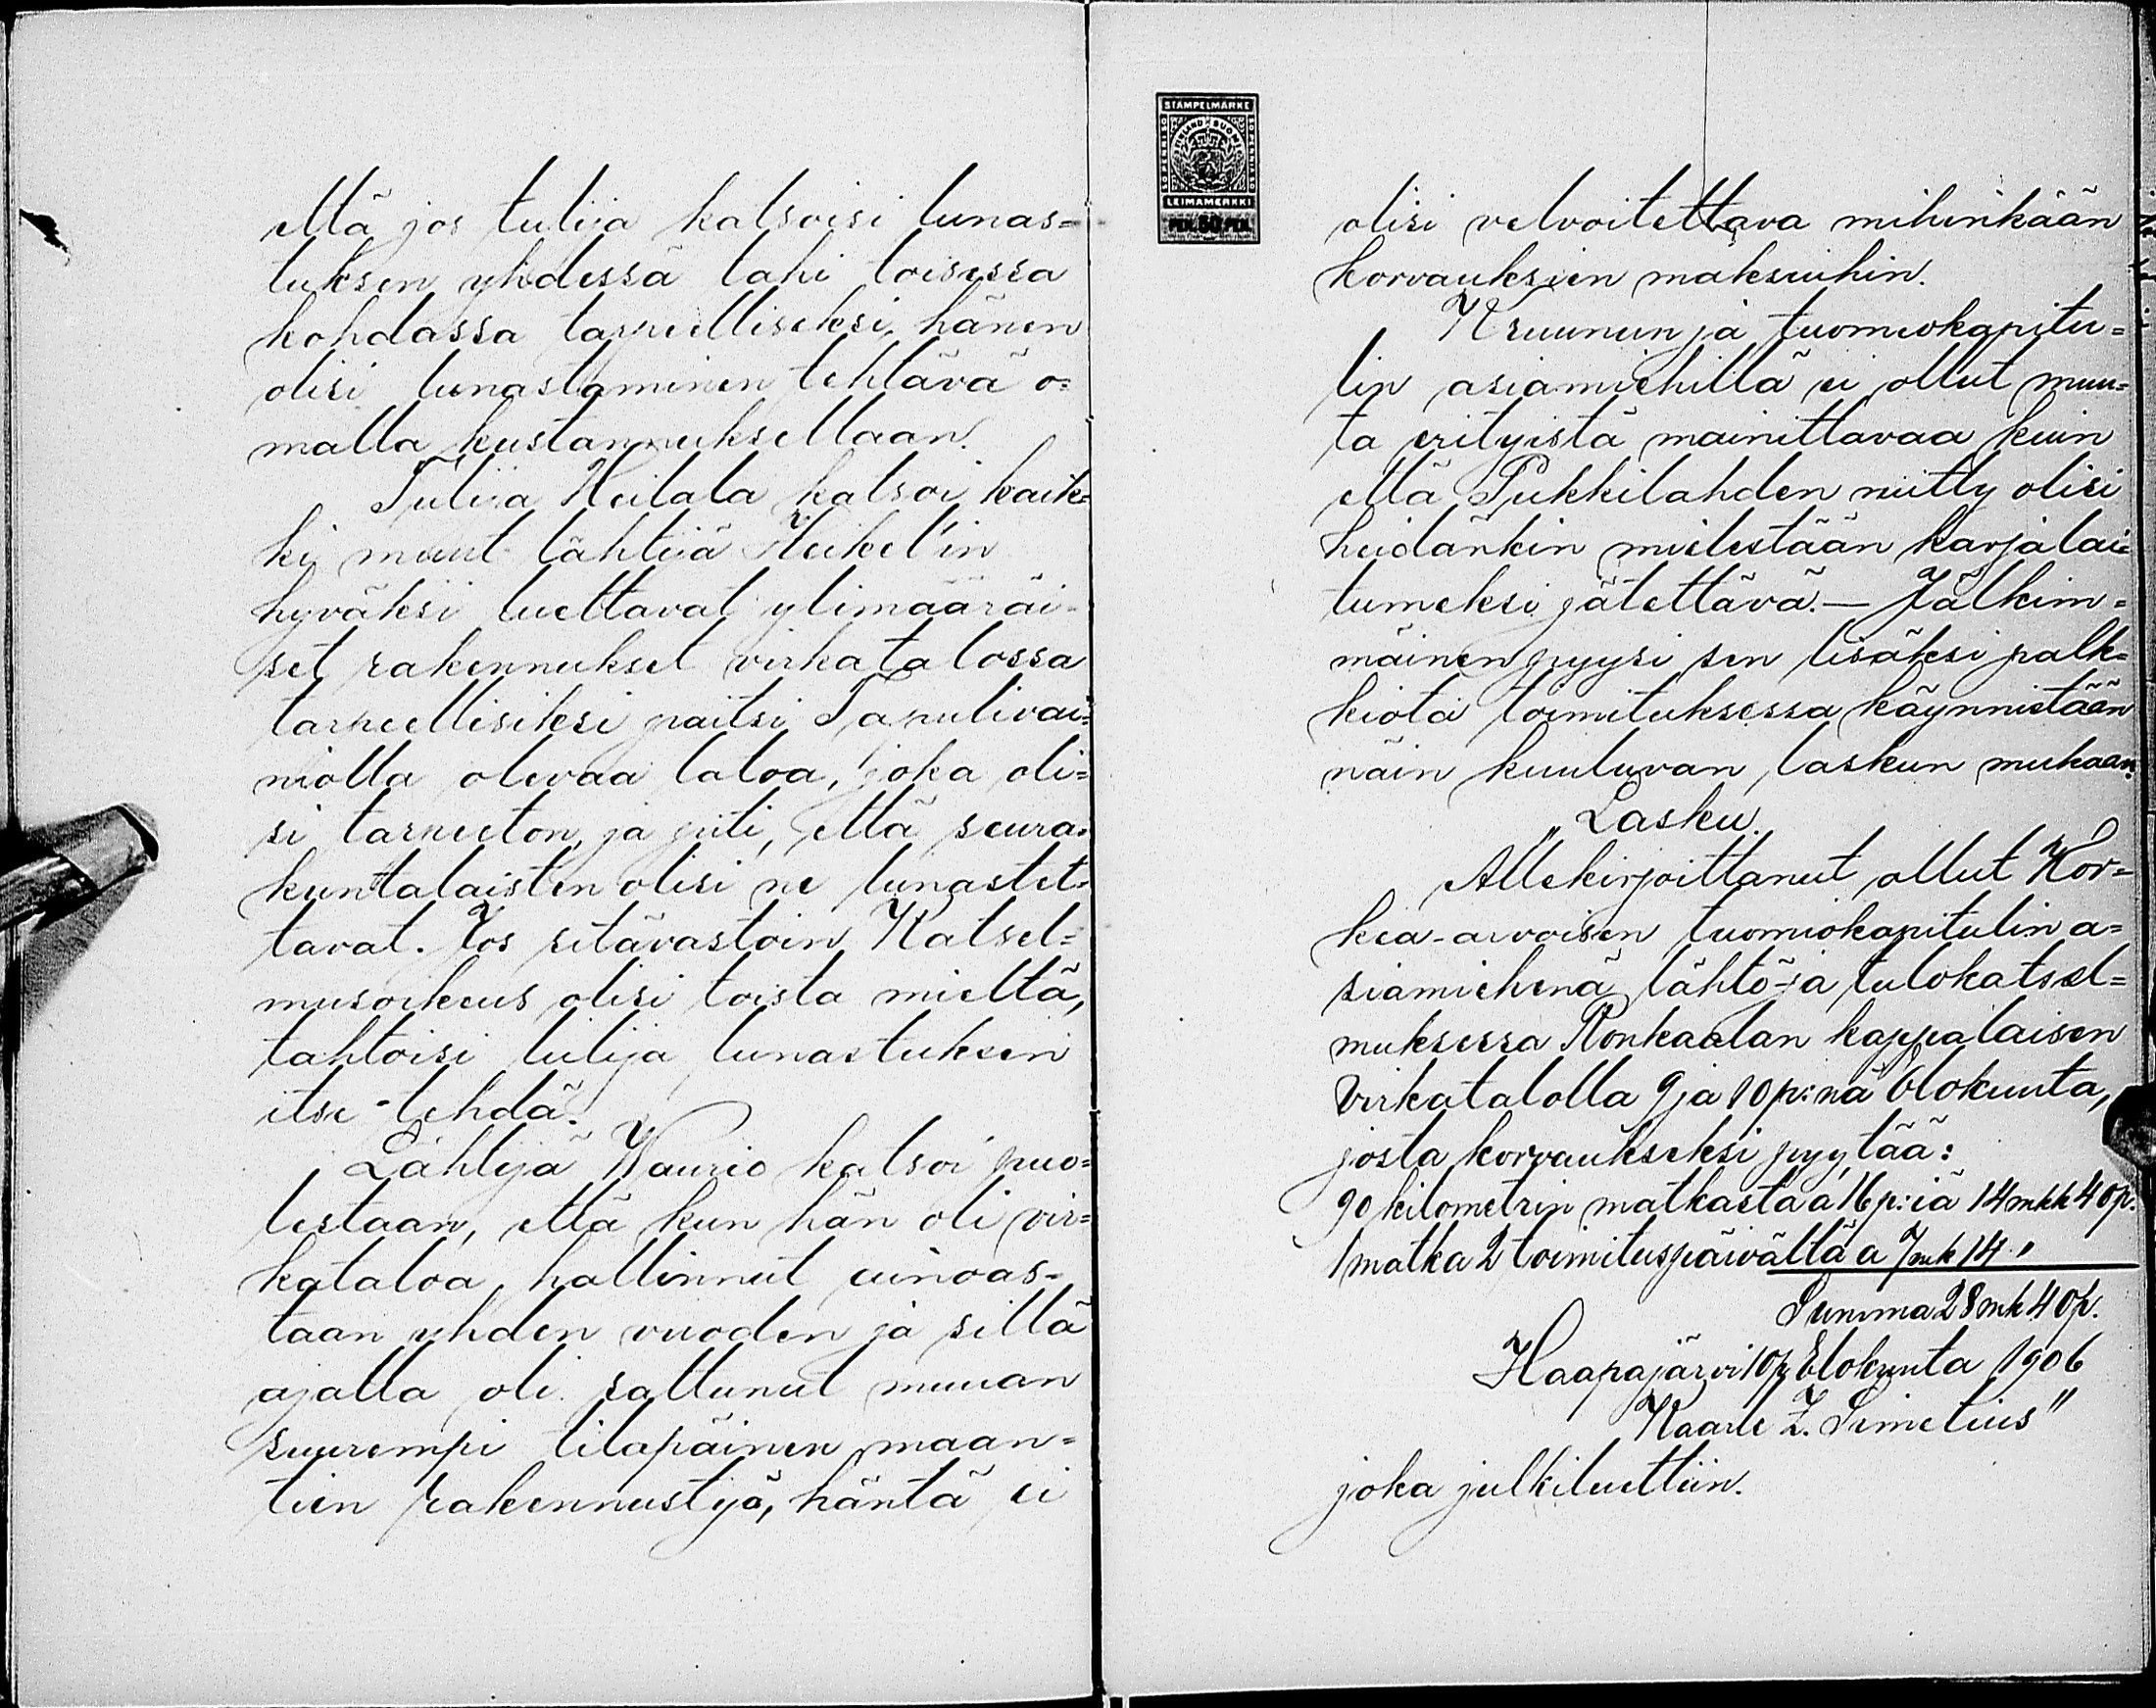 että jos tulija katsoisi lunas=
tuksen yhdessä tahi toisessa
kohdassa tarpeelliseksi, hänen
olisi lunastaminen tehtävä o=
malla kustannuksellaan.
Tulija Heilala katsoi kaik=
ki muut lähtijä Heikel'in
hyväksi luettavat ylimääräi-
set rakennukset virkatalossa
tarpeellisiksi paitsi Tapulivai=
niolla olevaa latoa, joka oli=
si tarpeeton, ja piti, että seura=
kuntalaisten olisi ne lunastet=
tavat. Jos sitävastoin Katsel=
musoikeus olisi toista mieltä,
tahtoisi tulija lunastuksen
itse tehdä.
Lähtijä Waurio katsoi puo=
lestaan, että kun hän oli vir=
kataloa hallinnut ainoas-
taan yhden vuoden ja sillä
ajalla oli sattunut muuan
suurempi tilapäinen maan=
tien rakennustyö, häntä ei
STÄMPELMÄRKE
FINLAND SUOMI
LEIMAMERKKI
PEN. 50 PEN.
olisi velvoitettava mihinkään
korvauksien maksuihin.
Kruunun ja tuomiokapitu=
lin asiamiehillä ei ollut muu=
ta erityistä mainittavaa kuin
että Pukkilahden niitty olisi
heidänkin mielestään karjalai=
tumeksi jätettävä. — Jälkim=
mäinen pyysi sen lisäksi palk=
kiota toimituksessa käynnistään
näin kuuluvan laskun mukaan:
"Lasku.
Allekirjoittanut ollut Kor=
kea-arvoisen tuomiokapitulin a=
siamiehenä lähtö- ja tulokatsel=
muksessa Ronkaalan kappalaisen
virkatalolla 9 ja 10 p:nä Elokuuta,
josta korvaukseksi pyytää:
90 kilometrin matkasta a 16 p:iä 14 mkk 40 p.
1 matka 2 toimituspäivältä a 7 mk 14 "
Summa 28 mk 40 p.
Haapajärvi 10 p Elokuuta 1906
Kaarle Z. Simelius"
joka julkiluettiin.